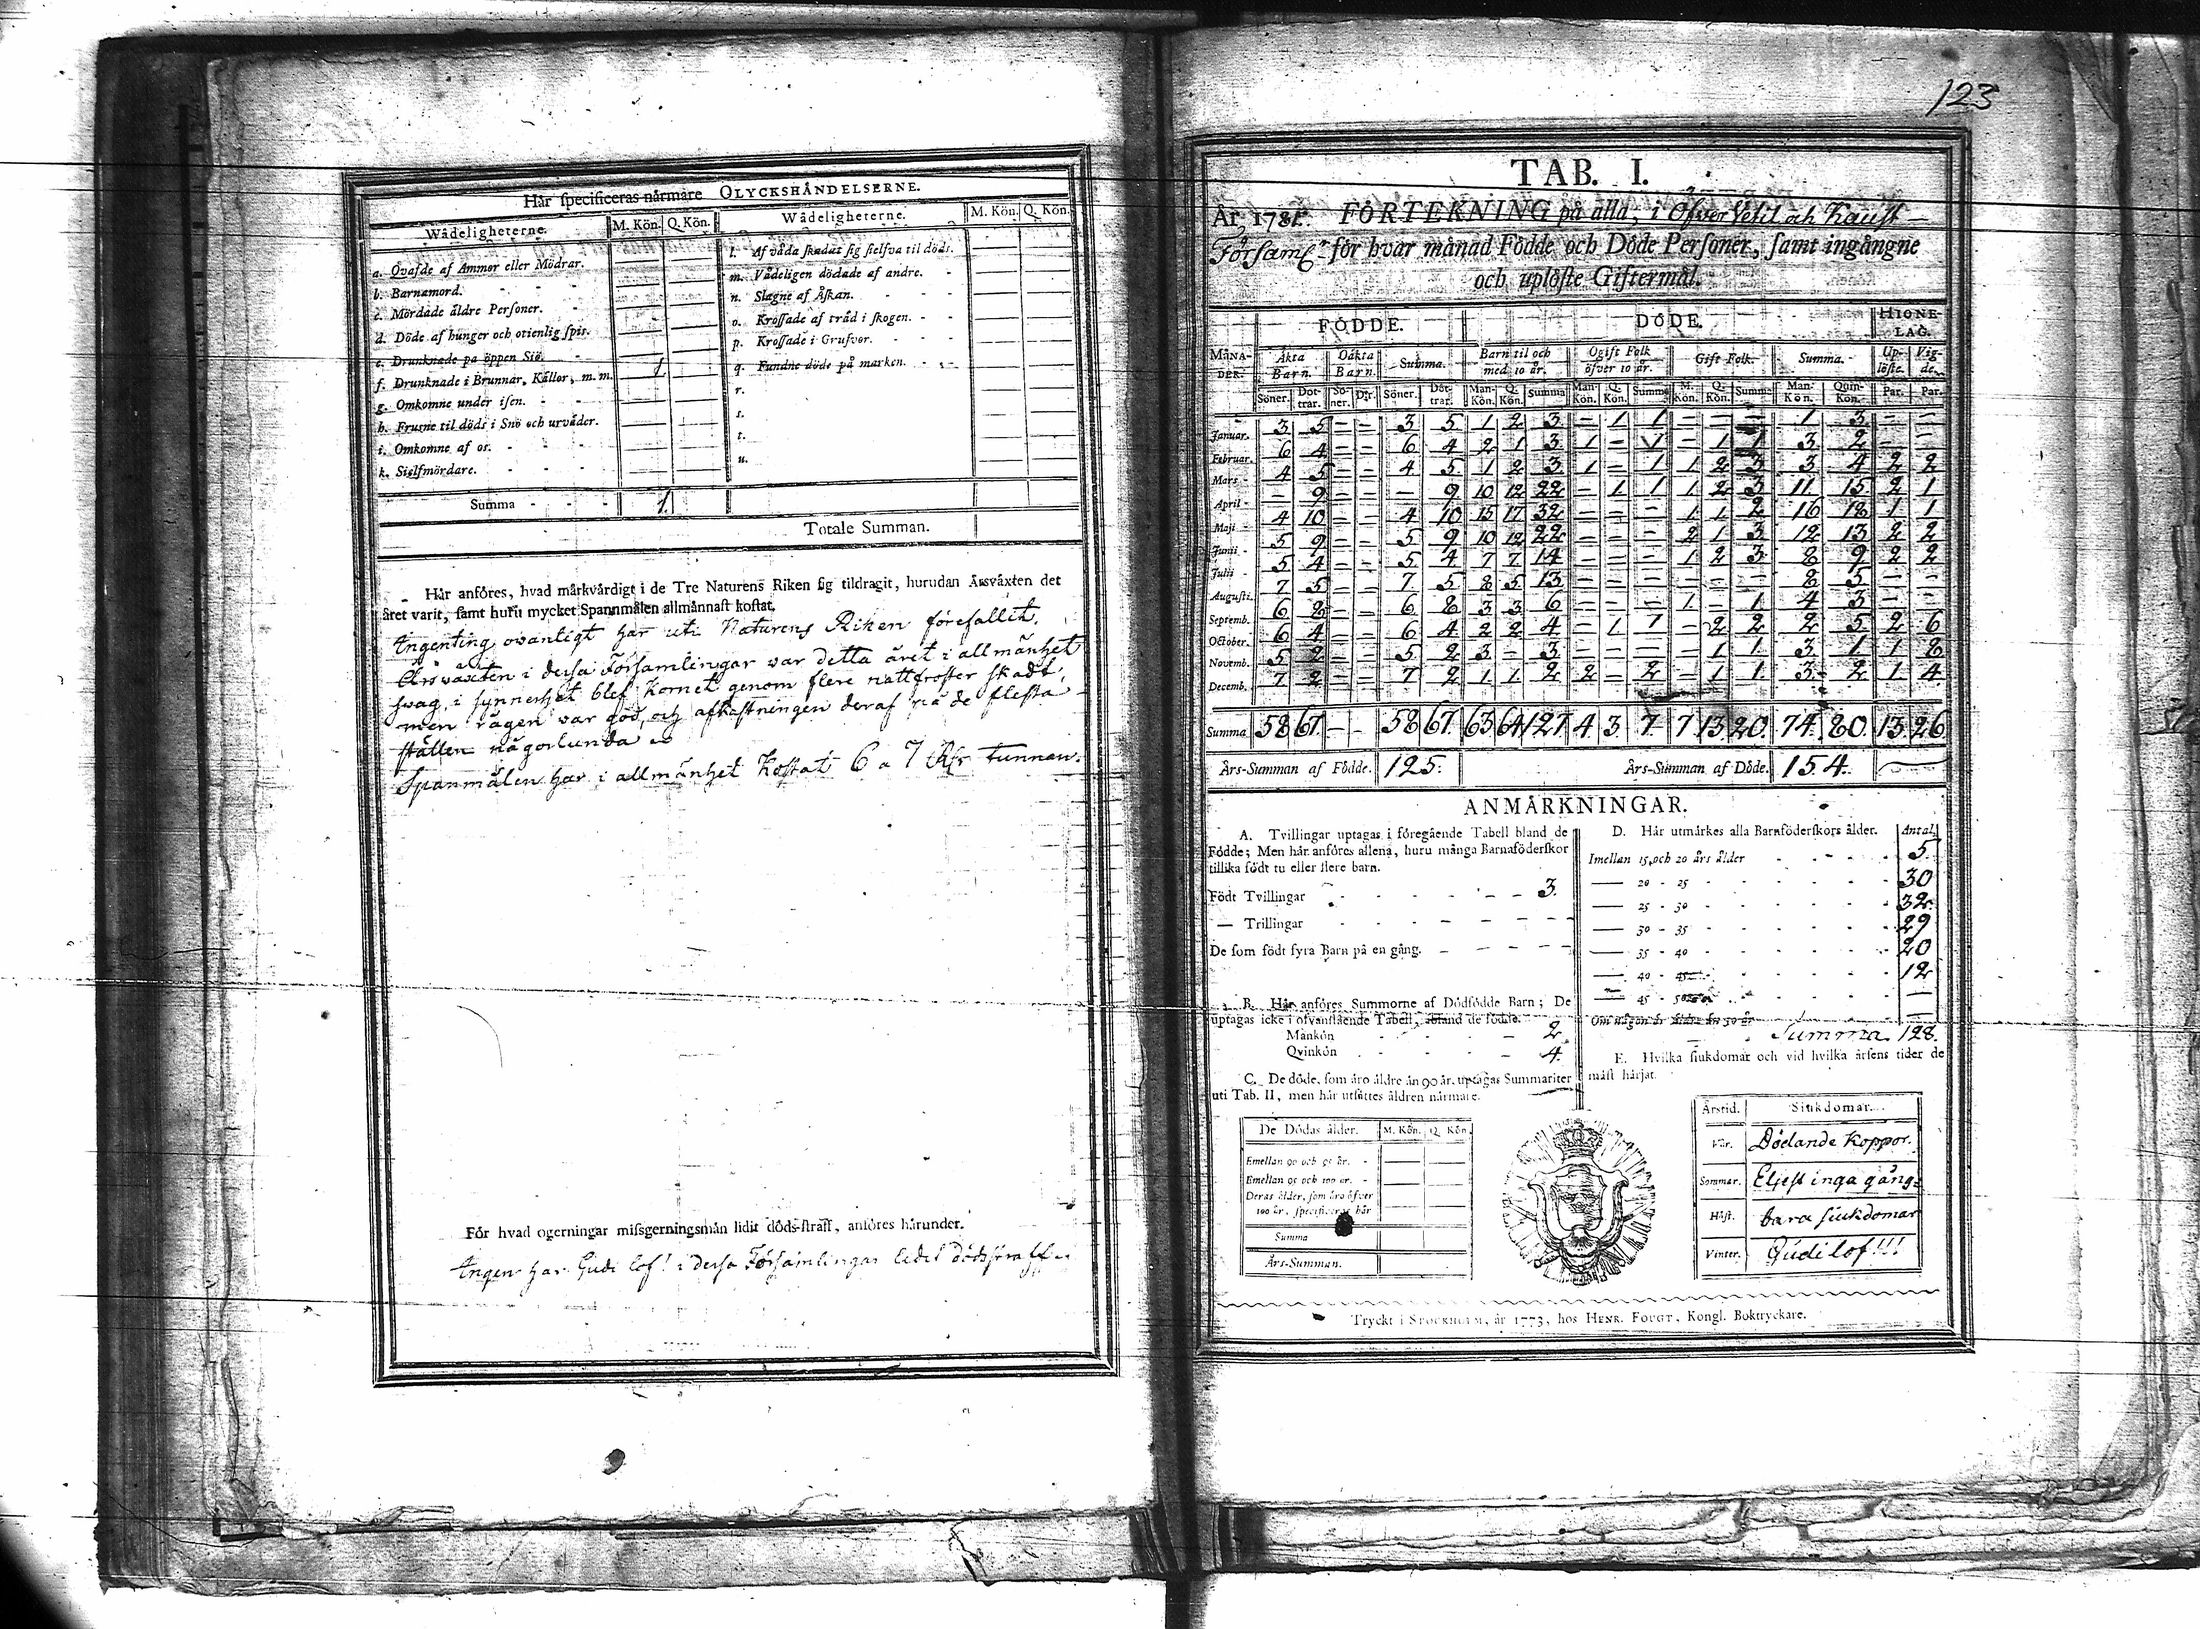 Hår specificeras nårmare OLYCKSHÅNDELSERNE.
Wådeligheterne. M. Kön. Q. Kön. Wådeligheterne. M. Kön. Q. Kön.
a. Qvafde af Ammor eller Mödrar.
b. Barnamord.
c. Mördade åldre Personer.
d. Döde af hunger och otienlig spis.
e. Drunknade på öppen Siö. 1
f. Drunknade i Brunnar, Källor, m. m.
g. Omkomne under isen.
h. Frusne til döds i Snö och urväder.
i. Omkomne af os.
k. Sielfmördare.
Summa 1.
l. Af våda skadat sig sielfva til döds.
m. Vådeligen dödade af andre.
n. Slagne af Åskan.
o. Krossade af träd i skogen.
p. Krossade i Grufvor.
q. Fundne döde på marken.
r.
s.
t.
u.
Totale Summan.
Hår anföres, hvad mårkvårdigt i de Tre Naturens Riken sig tildragit, hurudan Årsvåxten det
året varit, samt huru mycket Spannmålen allmånnast kostat.
Ingenting ovanligt har uti Naturens Riken förefallit.
Årsväxten i dessa Församlingar war detta året i allmänhet
swag, i synnerhet blef Kornet genom flere nattfroster skadt,
men rågen war god, och afkastningen deraf på de flesta
ställen någorlunda
Spanmålen har i allmänhet kostat 6 a 7 Rdr tunnan.
För hvad ogerningar missgerningsmån lidit döds-straff, anföres hårunder.
Ingen har Gudi lof! i dessa Församlingar lidit dödsstraff
123
TAB. I.
År 1781. FÖRTEKNING på alla, i Öfver Vetil och Kaust
Församl. för hvar månad Födde och Döde Personer, samt ingångne
och uplöste Giftermål.
FÖDDE. DÖDE. HIONE-LAG.
MÅNADER. Äkta Barn. Oäkta Barn. Summa. Barn til och med 10 år. Ogift Folk öfver 10 år. Gift Folk. Summa. Uplöste. Vigde.
Söner. Döttrar. Söner. D:r. Söner. Döttrar. Man-Kön. Q. Kön. Summa Man-Kön. Q. Kön. Summa M. Kön. Q. Kön. Summa Man-Kön. Quin-Kön. Par. Par.
Januar. 3 5 – – 3 5 1 2 3 – 1 1 – – – 1 3 – –
Februar. 6 4 – – 6 4 2 1 3 1 – 1 – 1 1 3 2 – –
Mars 4 5 – – 4 5 1 2 3 1 – 1 1 2 3 3 4 2 2
April – 9 – – – 9 10 12 22 – 1 1 1 2 3 11 15 2 1
Maji 4 10 – – 4 10 15 17 32 – – – 1 1 2 16 18 1 1
Junii 5 9 – – 5 9 10 12 22 – – – 2 1 3 12 13 2 2
Julii 5 4 – – 5 4 7 7 14 – – – 1 2 3 8 9 2 2
Augusti. 7 5 – – 7 5 8 5 13 – – – – – – 8 5 – –
Septemb. 6 8 – – 6 8 3 3 6 – – – 1 – 1 4 3 – –
October. 6 4 – – 6 4 2 2 4 – 1 1 – 2 2 2 5 2 6
Novemb. 5 2 – – 5 2 3 – 3 – – – – 1 1 3 1 1 8
Decemb. 7 2 – – 7 2 1 1 2 2 – 2 – 1 1 3 2 1 4
Summa 58 67 – – 58 67 63 64 127 4 3 7 7 13 20 74 80 13 26
Års-Summan af Födde. 125. Års-Summan af Döde. 154.
ANMÅRKNINGAR.
A. Tvillingar uptagas i föregående Tabell bland de
Födde; Men hår anföres allena, huru många Barnaföderskor
tillika födt tu eller flere barn.
Födt Tvillingar 3.
— Trillingar
De som födt fyra Barn på en gång.
B. Hår anföres Summorne af Dödfödde Barn; De
uptagas icke i ofvanstående Tabell, ibland de födde.
Mankön 2
Qvinkön 4.
C. De döde, som åro åldre ån 90 år, uptagas Summariter
uti Tab. II, men hår utsåttes åldren nårmare.
De Dödas ålder. M. Kön. Q. Kön.
Emellan 90 och 95 år.
Emellan 95 och 100 år.
Deras ålder, som åro öfver
100 år, specificeras hår
Summa
Års-Summan.
D. Hår utmårkes alla Barnföderskors ålder. Antal.
Imellan 15 och 20 års ålder 5
— 20 - 25 30
— 25 - 30 32
— 30 - 35 29
— 35 - 40 20
— 40 - 45 12
— 45 - 50 —
Om någon är äldre än 50 år —
Summa 128.
E. Hvilka siukdomar och vid hvilka årsens tider de
måst hårjat.
Årstid. Siukdomar.
Vår. Dödande koppor.
Sommar. Eljest inga gång-
Höst. bara siukdomar
Vinter. Gudi lof!!!
Tryckt i STOCKHOLM, år 1773, hos HENR. FOUGT, Kongl. Boktryckare.